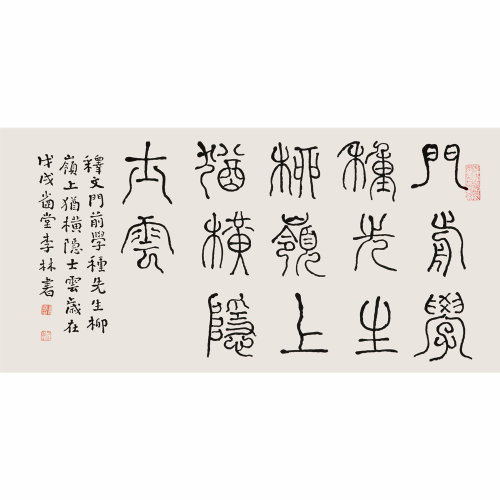 門前學
種先生
柳嶺上
猶橫隱
士雲
釋文門前學種先生柳
嶺上猶橫隱士雲歲在
戊戌齒堂李林書